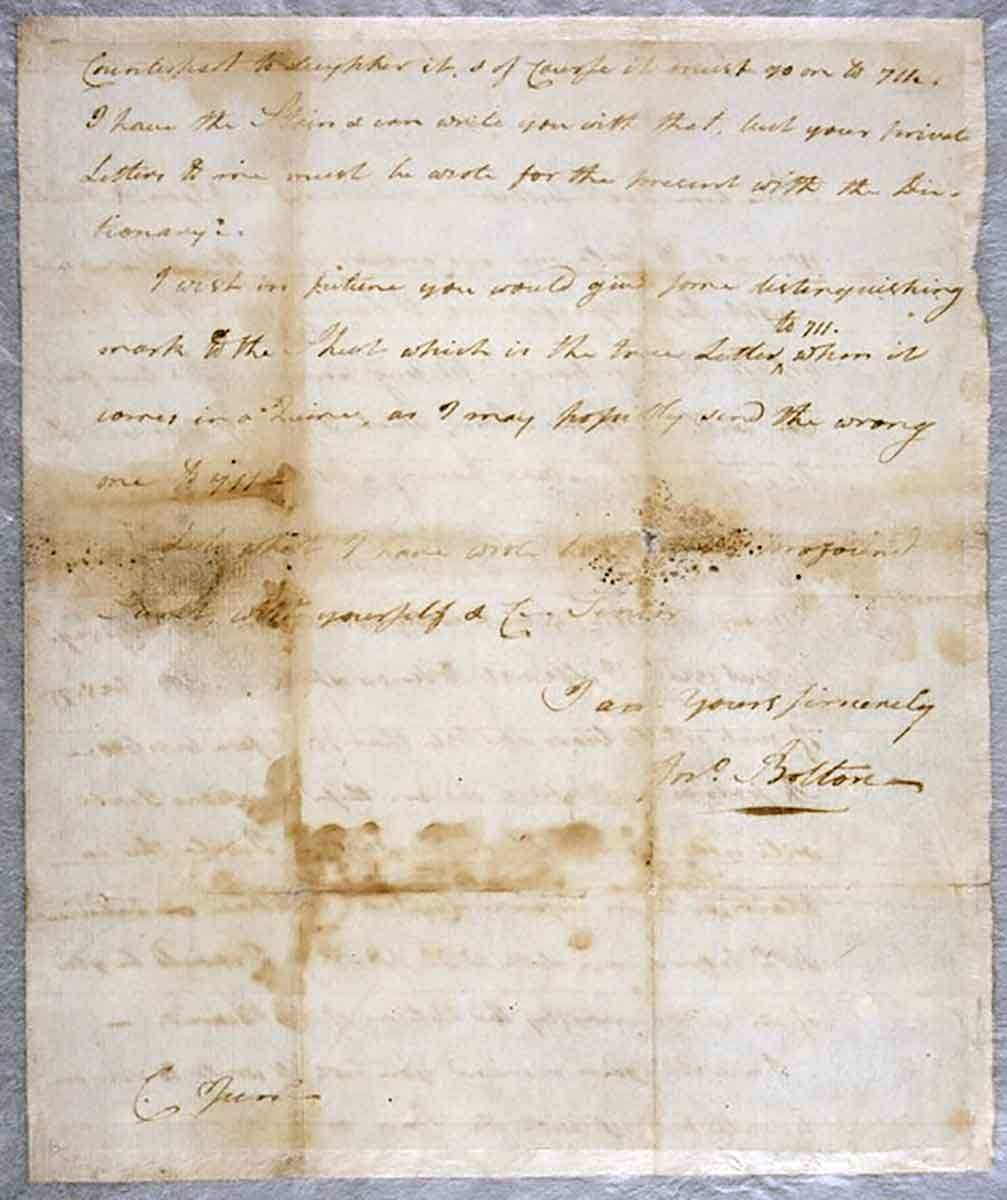 Counterpart to decypher it, & of Course it must go on to 711.
I have the Stain & can write you with that, but your private
Letters to me must be wrote for the present with the Dic-
tionary.
I wish in future you would give some distinguishing
mark to the Sheet which is the true Letter, ^ when it
to 711.
comes in a Quire, as I may possibly send the wrong
one to 711
what I have wrote profound
yourself & C. Senior
I am Yours sincerely
Jno. Bolton
C. Junr.